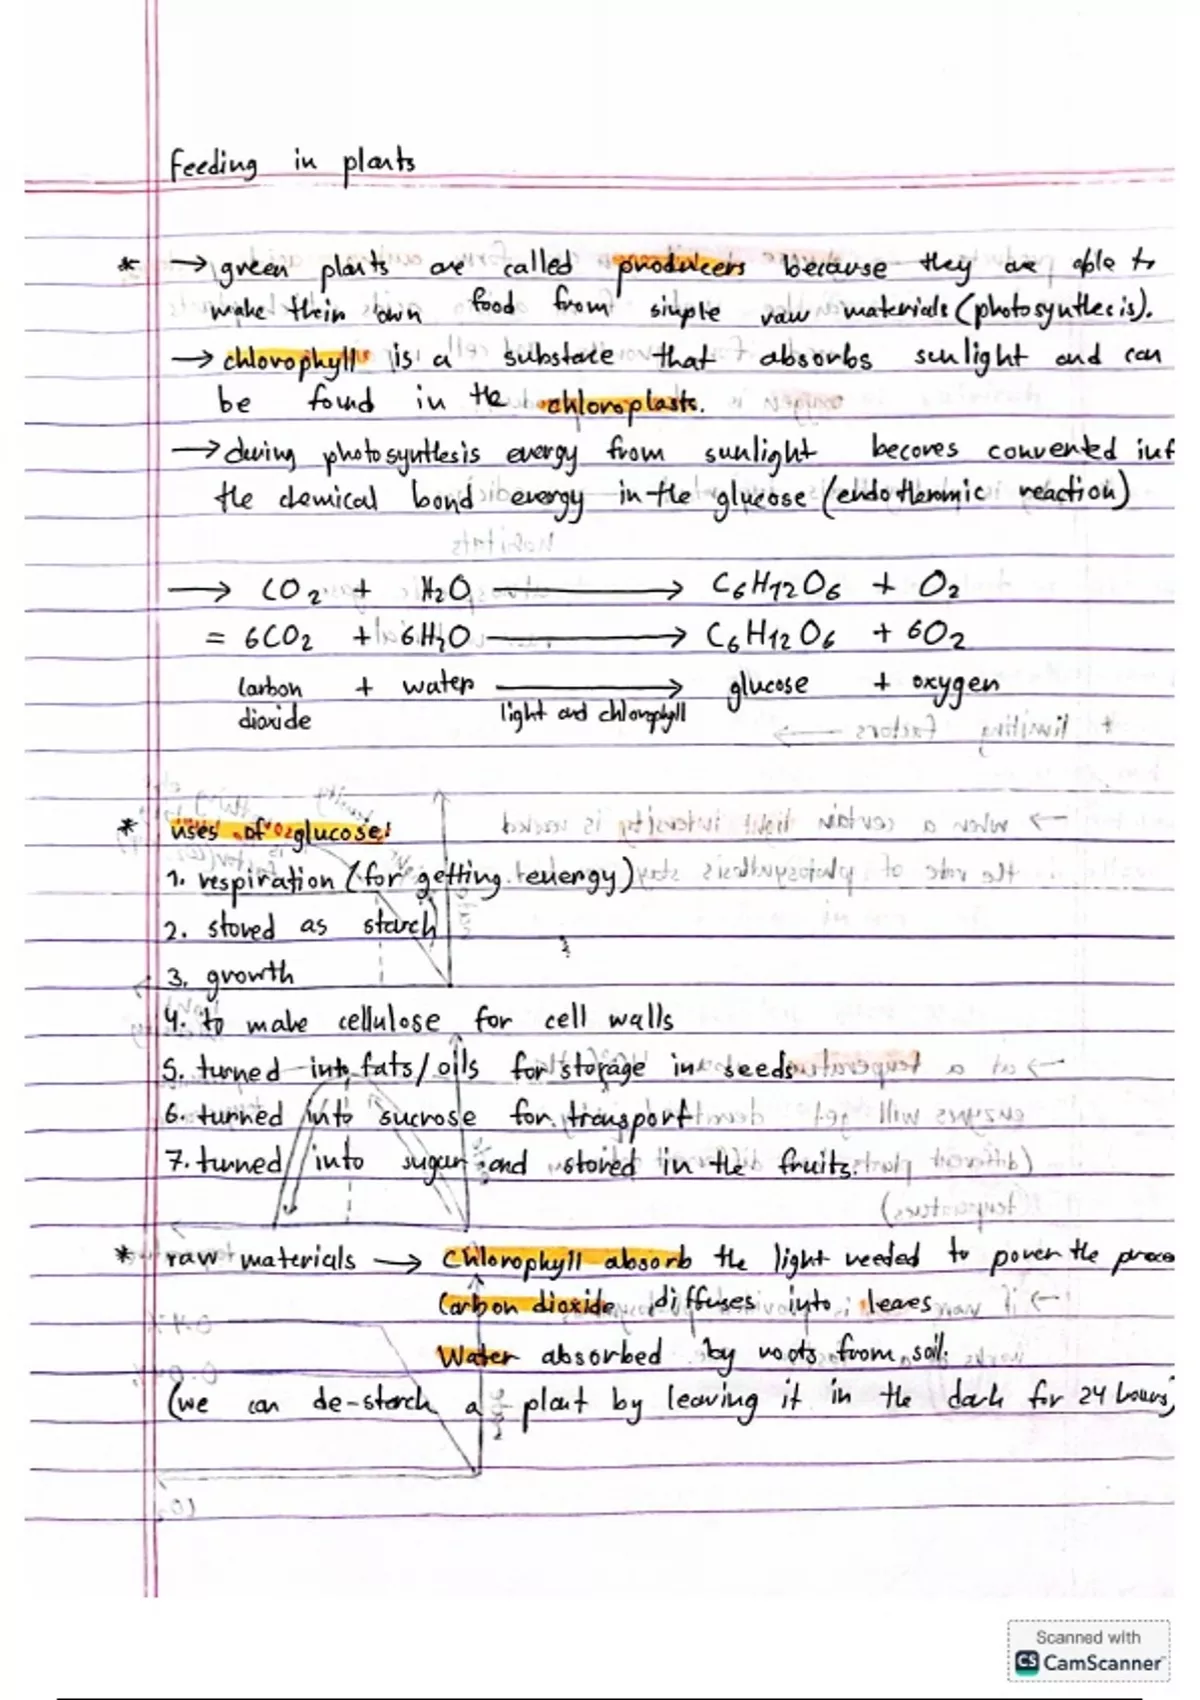 Feeding in plants
* → green plants are called producers because they are able to
make their own food from simple raw materials (photosynthesis).
→ chlorophyll is a substace that absorbs sunlight and can
be found in the chloroplasts.
→ during photosynthesis energy from sunlight becomes converted int
the chemical bond energy in the glucose (endothermic reaction)
→ CO2 + H2O → C6H12O6 + O2
= 6CO2 + 6H2O → C6H12O6 + 6O2
carbon + water → glucose + oxygen
dioxide light and chlorophyll
* uses of glucose:
1. respiration (for getting energy)
2. stored as starch
3. growth
4. to make cellulose for cell walls
5. turned into fats/oils for storage in seeds
6. turned into sucrose for transport
7. turned into sugar and stored in the fruits.
* raw materials → Chlorophyll absorb the light needed to power the proce
Carbon dioxide diffuses into leaves
Water absorbed by roots from soil.
(we can de-starch a plant by leaving it in the dark for 24 hours)
Scanned with
CS CamScanner